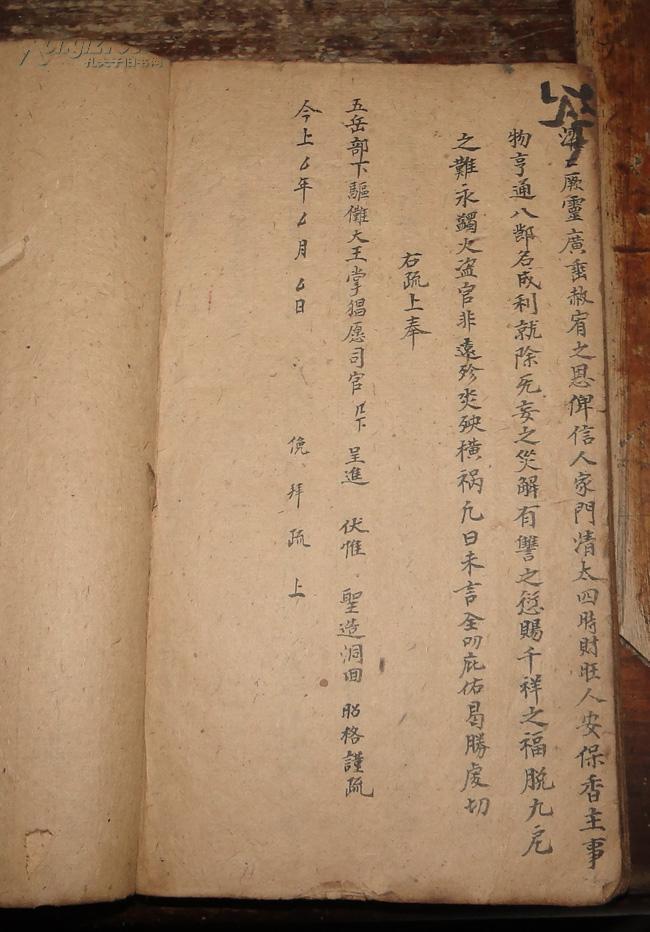 厥靈廣垂赦宥之恩俾信人家門清太四時財旺人安保香主事
物亨通八節名成利就除死妄之災解有讐之愆賜千祥之福脫九厄
之難永蠲火盜官非遠殄灾殃橫禍凢日未言全叨庇佑曷勝虔切
右疏上奉
五岳部下驅儺大王掌猖愿司官 呈進 伏惟 聖造洞回 昭格謹疏
今上 年 月 日 俛拜疏上
孔夫子旧书网